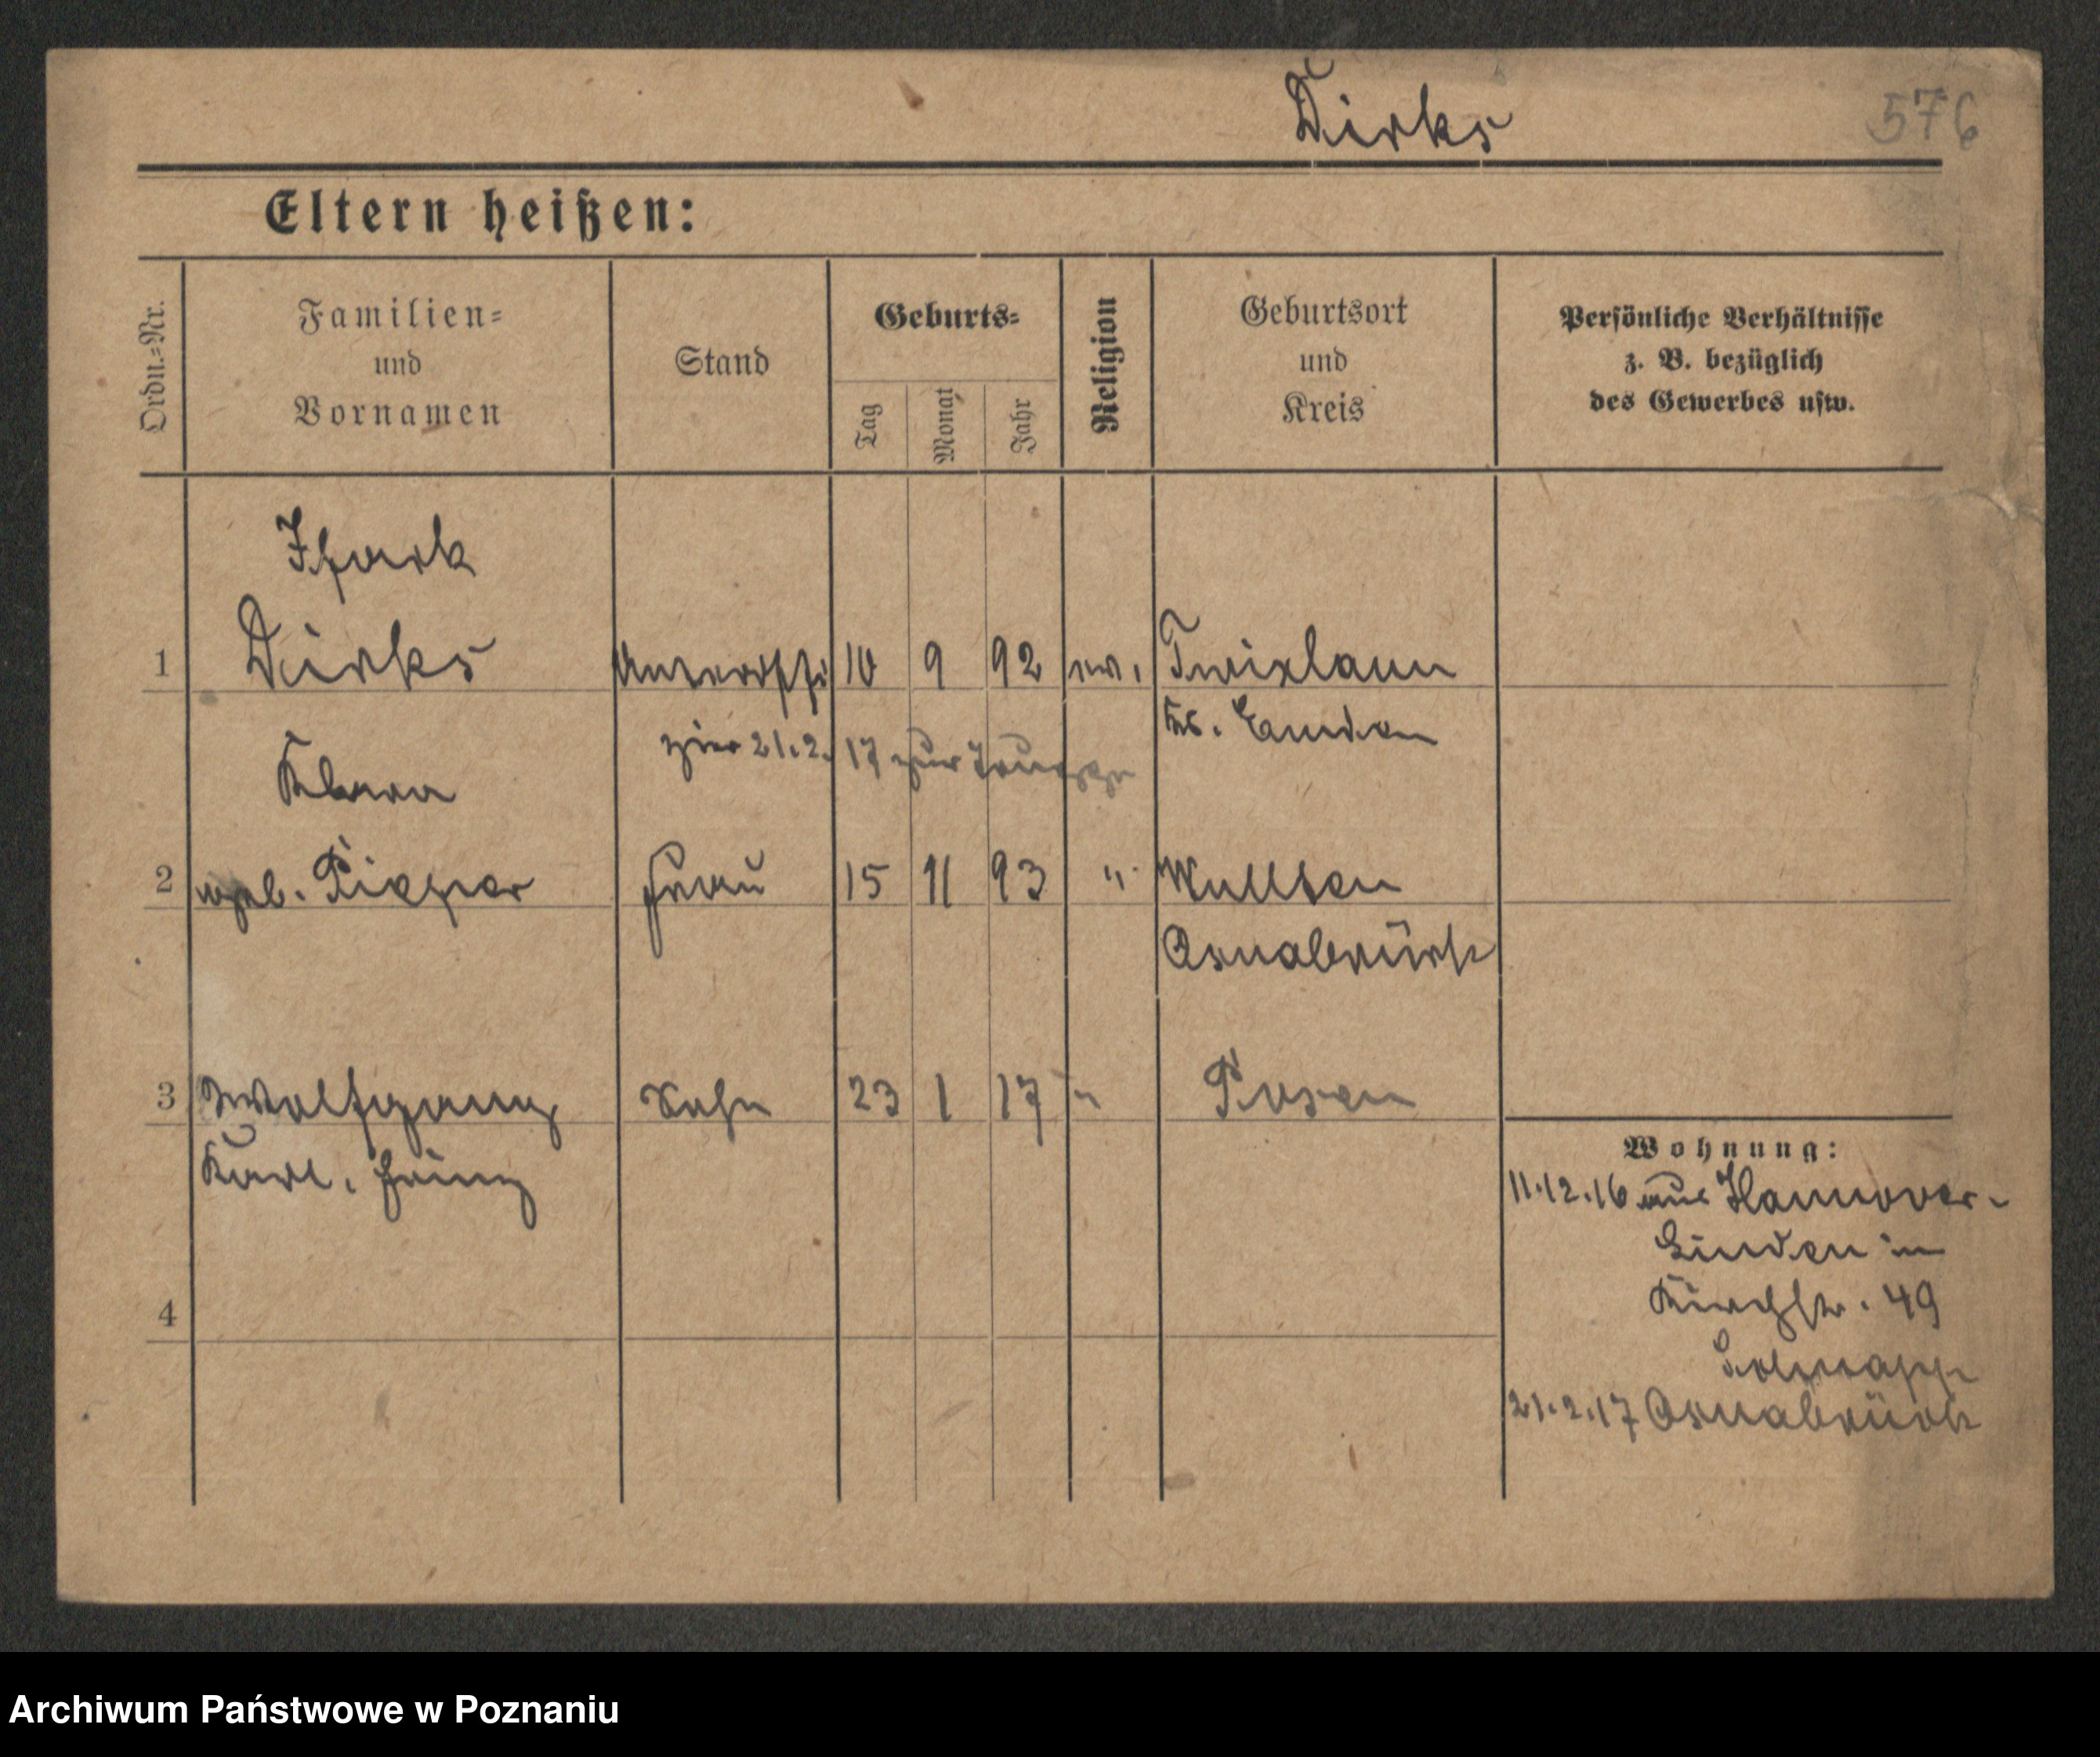 Dirks
576
Eltern heißen:
Ordn.=Nr.
Familien=
und
Vornamen
Stand
Geburts=
Tag
Monat
Jahr
Religion
Geburtsort
und
Kreis
Persönliche Verhältnisse
z. B. bezüglich
des Gewerbes usw.
Dirks
1
10 9 92 ev.
Twixlum
Emden
21.2.17 zur
Klara
2
geb. Pieper
Frau
15 11 93 "
Osnabrück
3
Wolfgang
Sohn
23 1 17 "
Posen
Karl, Heinz
4
Wohnung:
11.12.16 aus Hannover-
Linden in
Kirchstr. 49
21.2.17 Osnabrück
Archiwum Państwowe w Poznaniu